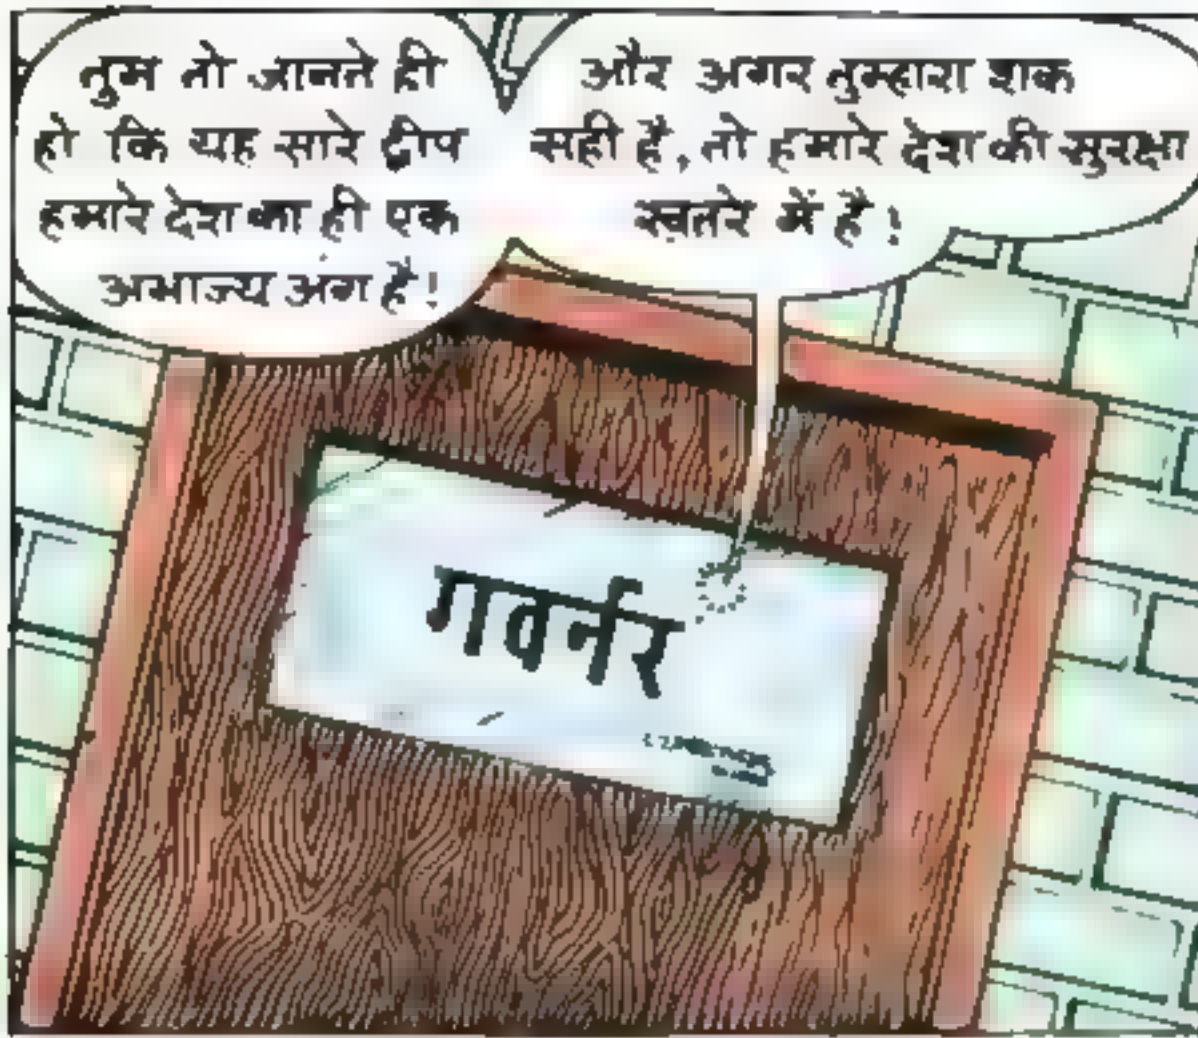 तुम तो जानते ही
हो कि यह सारे द्वीप
हमारे देश का ही एक
अभाज्य अंग है!
और अगर तुम्हारा शक
सही है, तो हमारे देश की सुरक्षा
खतरे में है!
गवर्नर